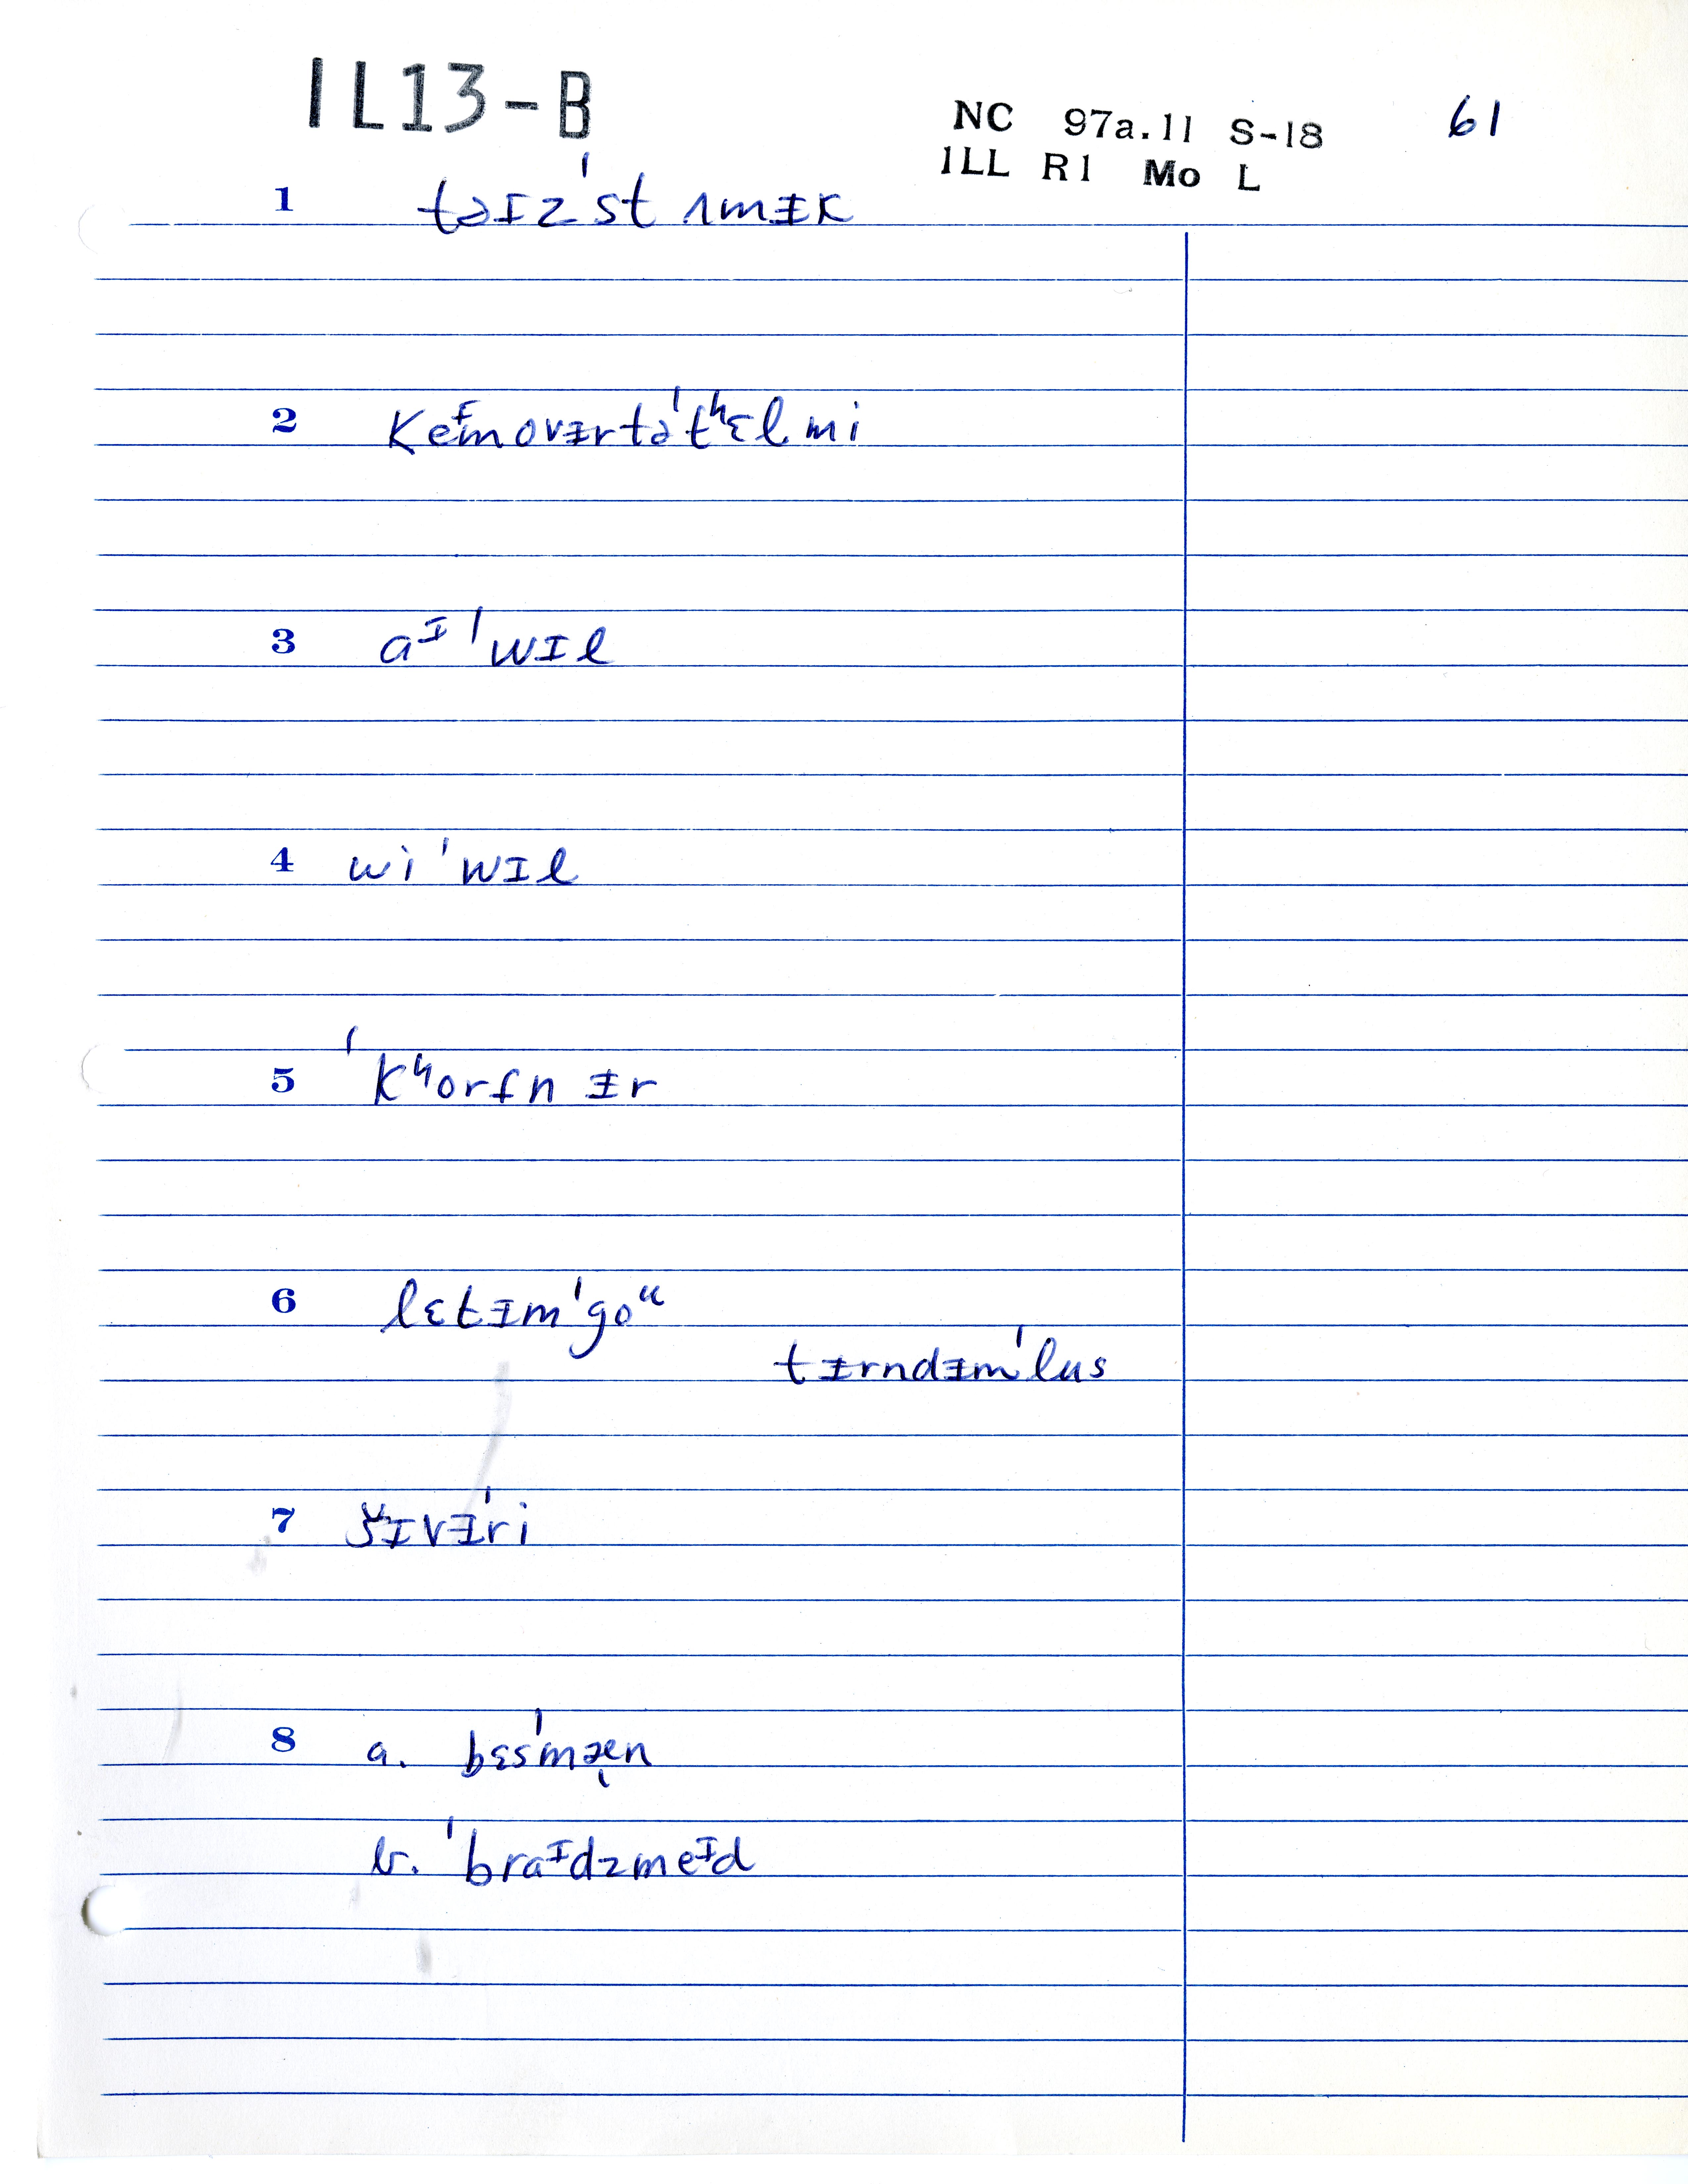 IL13-B
NC 97a.11 S-18 61
ILL R1 Mo L
1 təɪz'st ʌmᵻk
2 keᶦmovᵻrtə'tʰɛl mi
3 aᶦ 'wɪl
4 wi 'wɪl
5 'kʰorfn ᵻr
6 lɛtᵻm'goᵘ
tᵻrndᵻm'lus
7 šɪvᵻ'ri
8 a. bɛs'mæ̨n
b. 'braᶦdzmeᶦd